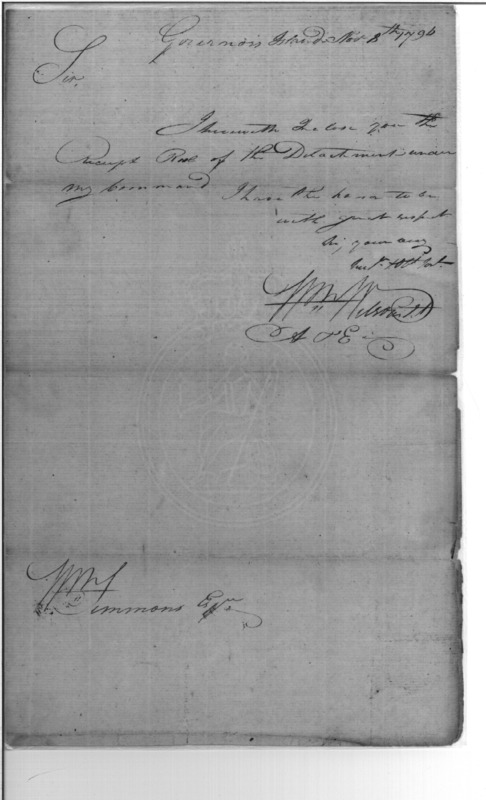 Governors Island Nov 8th 1796
Sir,
I herewith Inclose you the
receipt Roll of the Detachment under
my Command I have the honor to be
with great respect
Sir, your
Obt
Wm Wilson Lt
A & E
Wm
Simmons Esqr